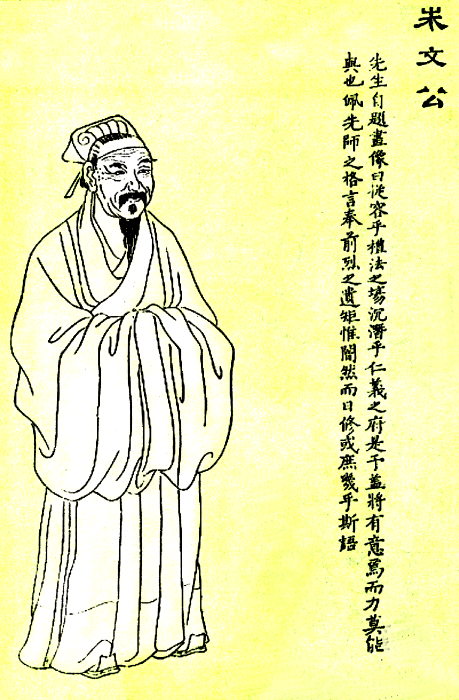 朱文公
先生自題畫像曰從容乎禮法之場沉潛乎仁義之府是予蓋將有意焉而力莫能
與也佩先師之格言奉前烈之遺矩惟闇然而日修或庶幾乎斯語